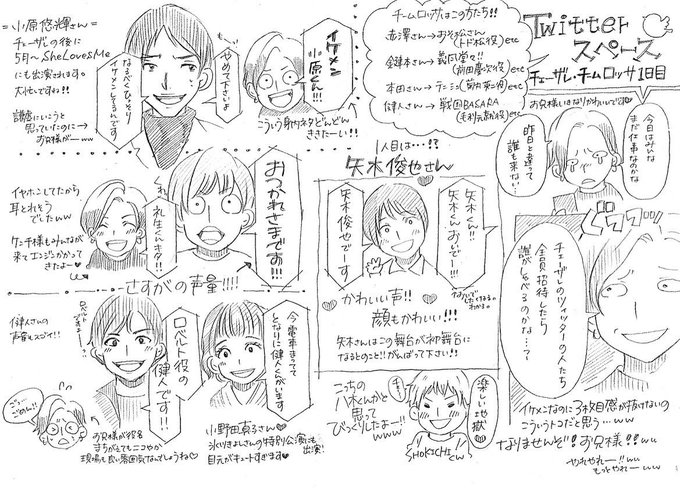 Twitter
スペース
チェーザレ・チームロッサ1日目
チームロッサはこの方たち!!
赤澤さん→おそ松さん
(トド松役)etc
鍵本さん→義風堂々!!
(前田慶次役)etc
本田さん→テニミュ
健人さん→戦国BASARA
(毛利元就役)etc
お兄様いきなりかわいいです♡
今日はみんな
まだ仕事なのかな
昨日と違って
誰も来ない…
チェーザレのツイッターの人たち
全員招待したら
誰がしゃべるのかな…?
イケメンなのに3枚目感が抜けないの
こういうトコだと思う…ww
なりませんぞ!お兄様!!ww
やれやれー!!ww
もっとやれーww
1人目は…!?
矢木俊也さん
矢木くん!!
矢木くんおいでー!!!
矢木俊也でーす
かわいい声!!
顔もかわいい!!!
矢木さんはこの舞台が初舞台に
なるとのこと!!がんばって下さい!!
楽しい地獄
こっちの
八木くんかと
思って
びっくりしたよー!!
www
SHOKICHI
cw
=小原悠輝さん=
チェーザレの後に
5月〜SheLovesMe
にも出演されます。
大忙しですね!!
イケメン
小原くん!!!
やめて下さいよ
なるべくひっそり
イケメンしてるんです
こういう身内ネタどんどん
ききたーい!!
おつかれさまです!!!
礼生くんキタ!!
イヤホンしてたから
耳とれそう
でしたww
ケンチ様もみんなが
来てエンジンかかって
きたよー♡
さすがの声量!!!!
今、電車まってて
となりに健人くんがいます
ロベルト役の
健人です!!!
健人さんの
声量もスゴイ!!
ごめん!!
お兄様が役名
まちがえてもニコやか
現場も良い雰囲気なんでしょうね♡
小野田真子さん♡
氷川きよしさんの特別公演にも
出演!
目元がキュートすぎます♡